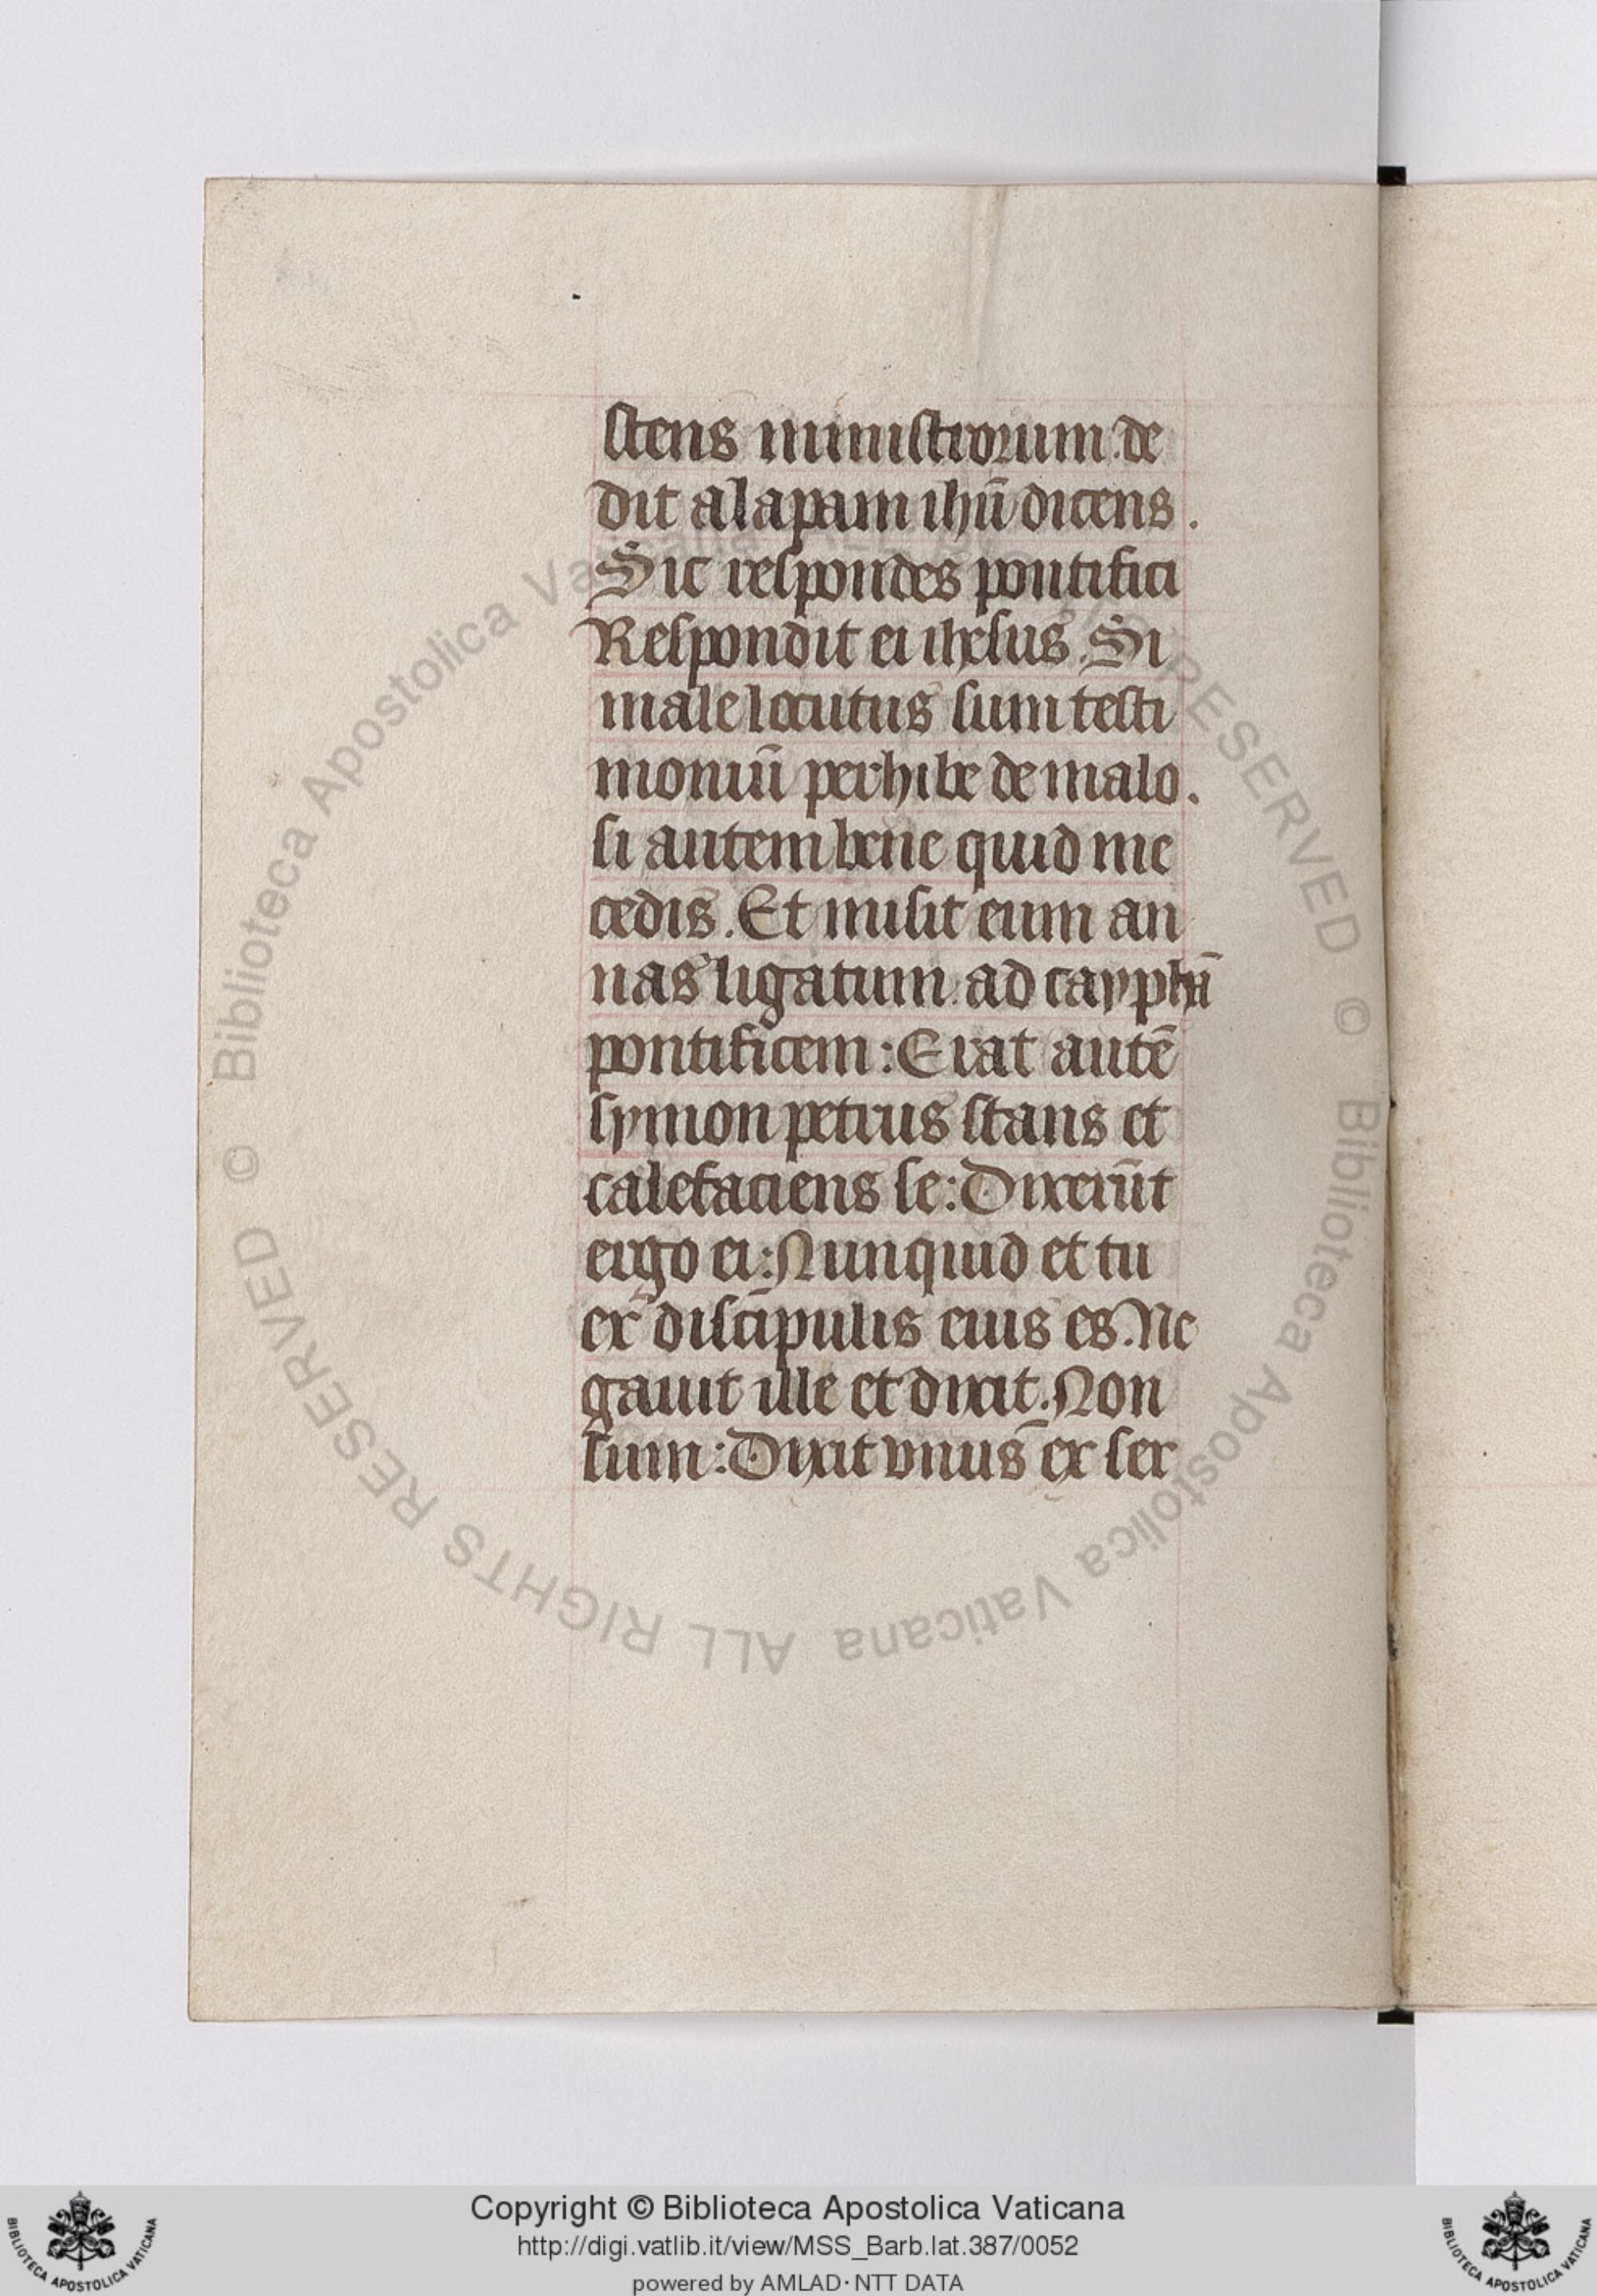 stens ministrorum. de
dit alapam ihū dicens.
Sic respondes pontifici
Respondit ei ihesus. Si
male locutus sum testi
moniū perhibe de malo.
si autem bene quid me
cedis. Et misit eum an
nas ligatum. ad cayphā
pontificem: Erat autē
symon petrus stans et
calefaciens se: Dixerūt
ergo ei: Nunquid et tu
ex discipulis eius es. Ne
gauit ille et dixit. Non
sum: Dixit vnus ex ser
© Biblioteca Apostolica Vaticana ALL RIGHTS RESERVED
© Biblioteca Apostolica Vaticana ALL RIGHTS RESERVED
Copyright © Biblioteca Apostolica Vaticana
http://digi.vatlib.it/view/MSS_Barb.lat.387/0052
powered by AMLAD·NTT DATA
BIBLIOTECA APOSTOLICA VATICANA
BIBLIOTECA APOSTOLICA VATICANA